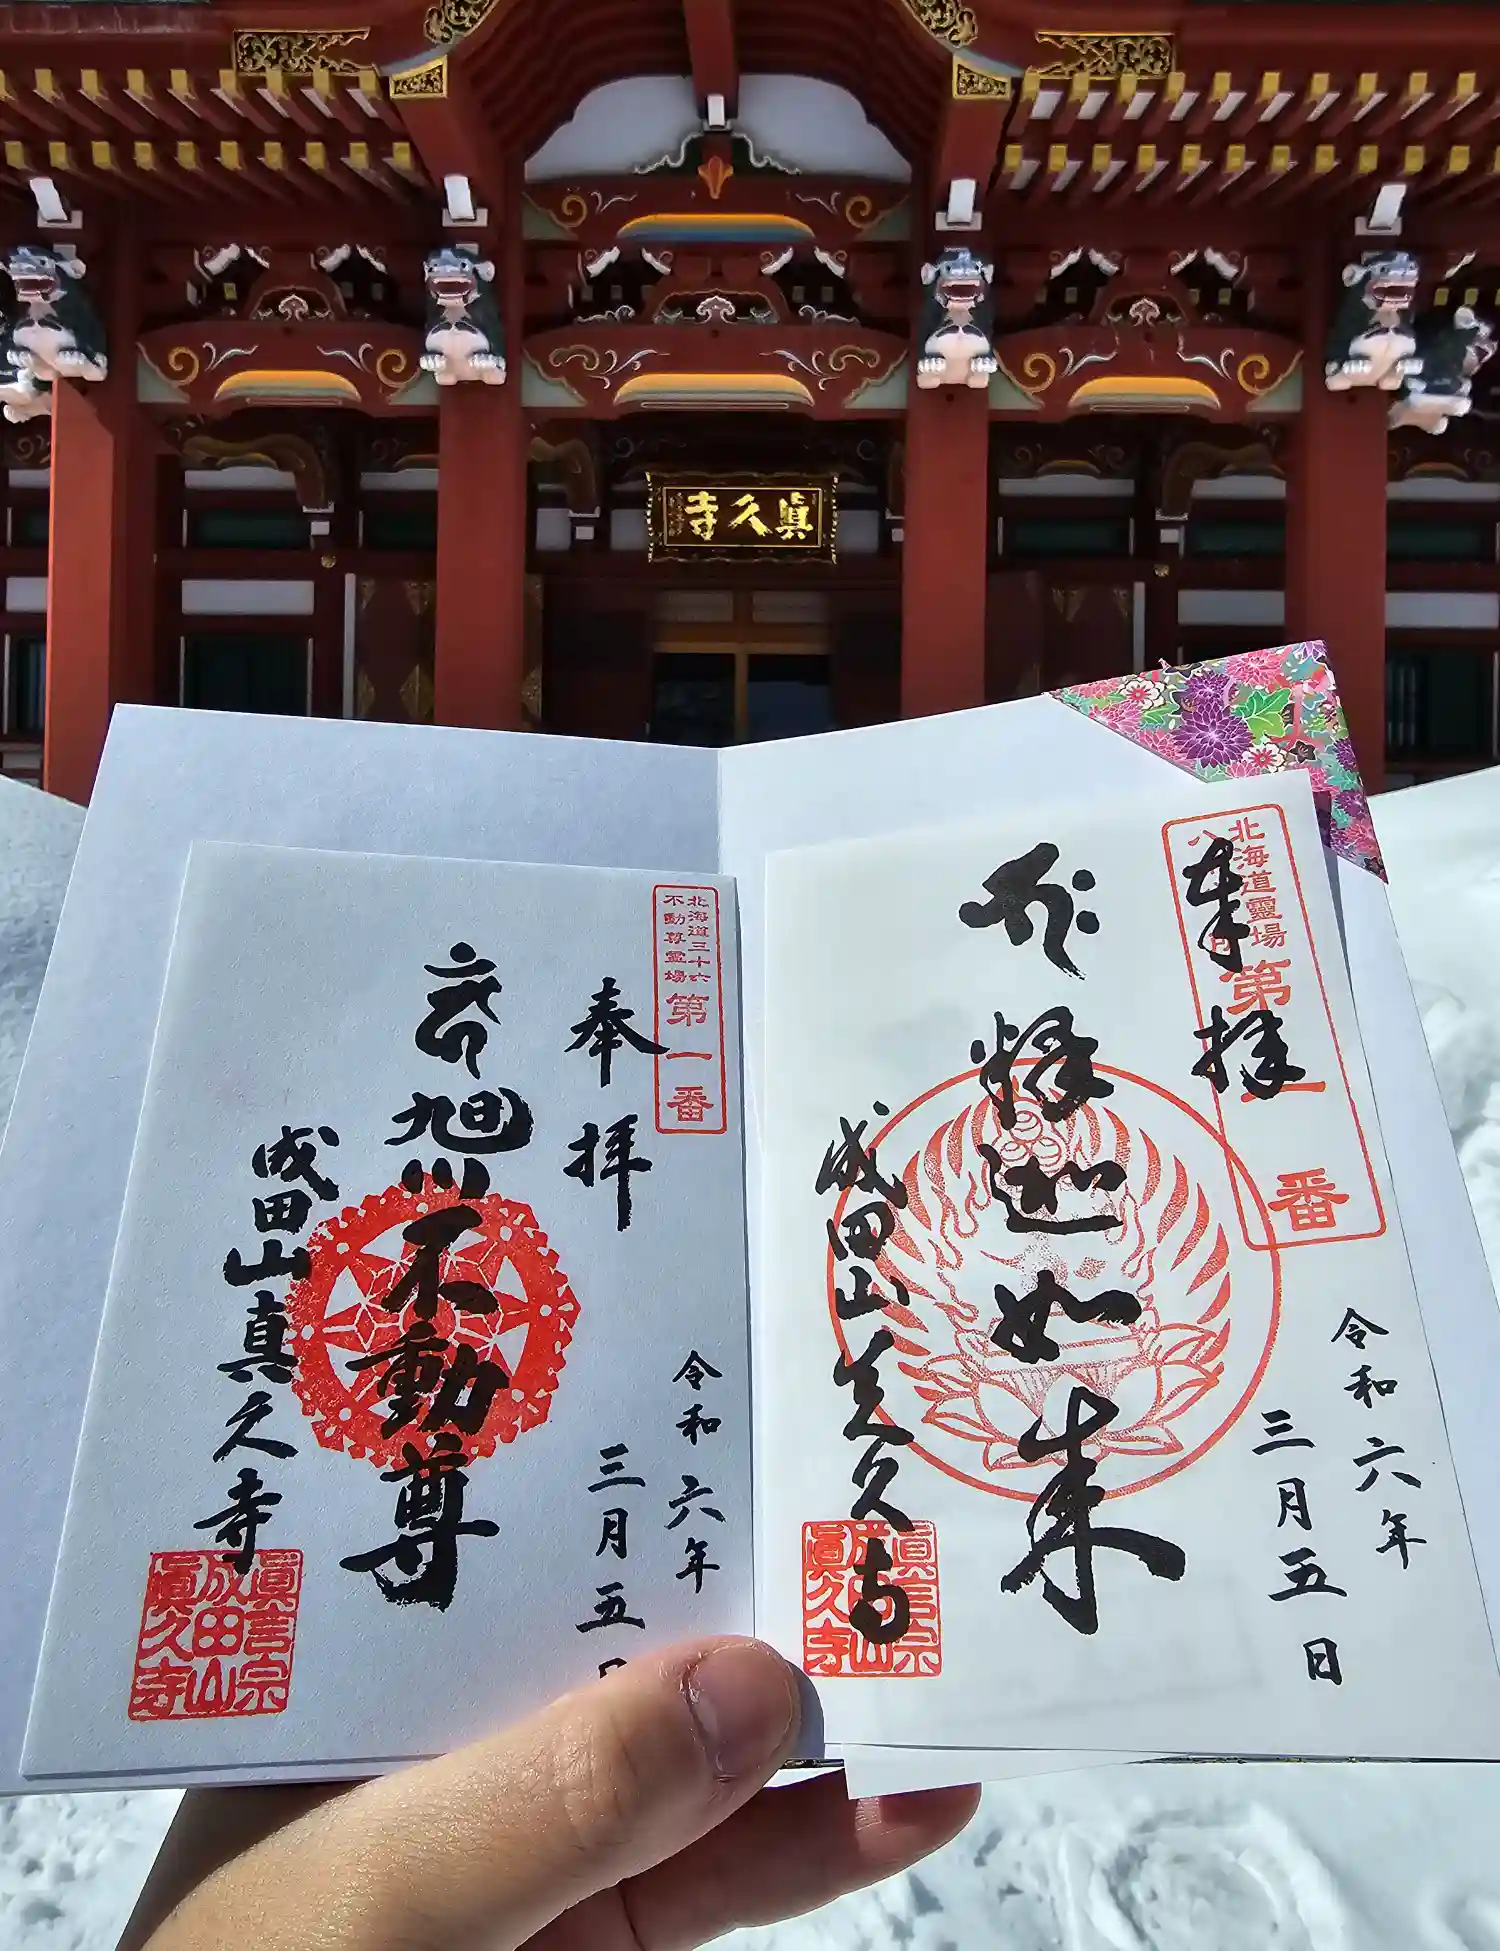 眞久寺
北海道靈場
第一番
奉拝
釋迦如来
成田山真久寺
令和六年
三月五日
眞言宗
成田山
眞久寺
北海道三十六
不動尊霊場
第一番
奉拝
旭川不動尊
成田山真久寺
令和六年
三月五日
眞言宗
成田山
眞久寺